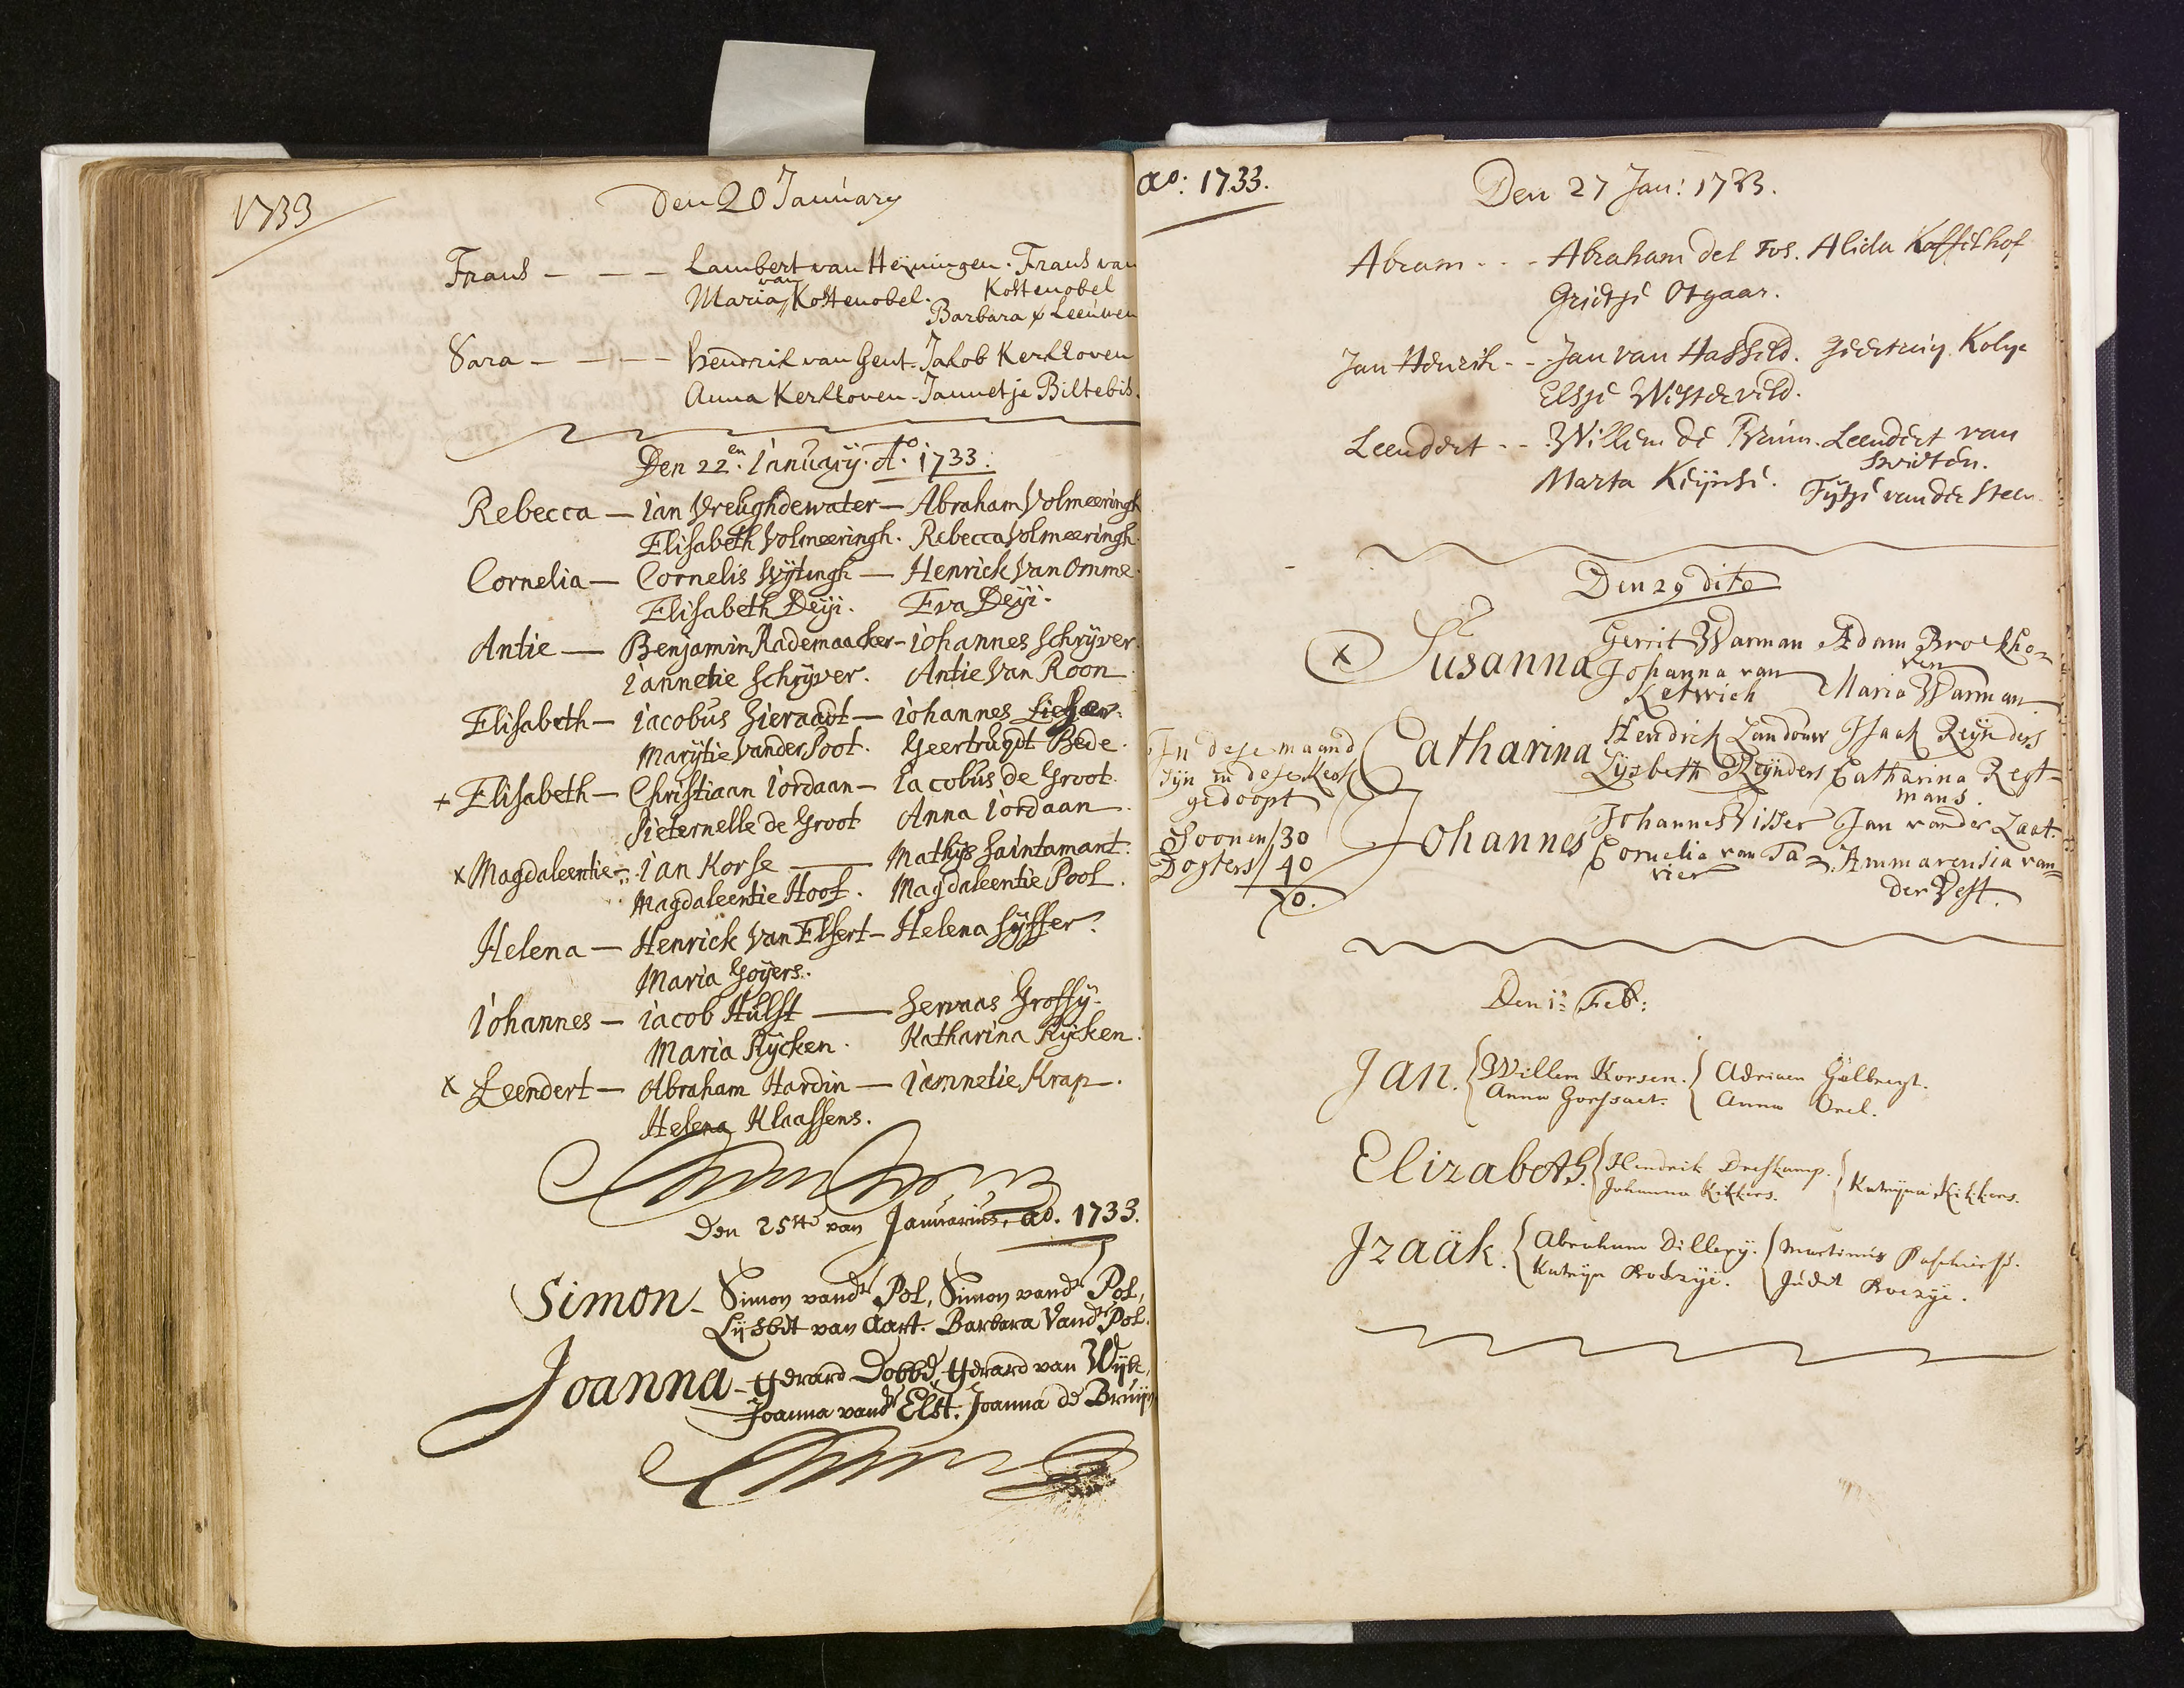 1733
Den 20 January
Frans - - - Lambert van Heyningen. Frans van
Maria van Kostenobel. Kostenobel
Barbara v Leeuwen
Sara - - - - Hendrik van Gent. Jakob Kerkhoven
Anna Kerkhoven. Jannetje Biltebis.
Den 22en. Ianuarij. Ao. 1733.
Rebecca — Ian Vreughdewater — Abraham Volmeeringh
Elisabeth Volmeeringh. Rebecca Volmeeringh.
Cornelia — Cornelis Wytingh — Henrick Van Omme.
Elisabeth Deyi. Eva Deyi.
Antie — Benjamin Rademaacker — Iohannes Schryver.
Iannetie Schryver. Antie Van Roon.
Elisabeth — Iacobus Zieraadt — Iohannes
Marytie Vander Poot. Geertrugdt Bede.
+ Elisabeth — Christiaan Iordaan — Iacobus de Groot.
Pieternelle de Groot Anna Iordaan.
x Magdaleentie — Ian Korse — Mathys Saintamant.
Magdaleentie Hoof. Magdaleentie Pool.
Helena — Henrick Van Elsert — Helena Syffer.
Maria Goyers.
Iohannes — Iacob Hulst — Servaas Groffy.
Maria Rycken. Katharina Rycken.
x Leendert — Abraham Hardin — Iannetie Krap.
Helena Klaassens.
Den 25ste van Januarius, ao. 1733.
Simon - Simon vandr Pol, Simon vandr Pol,
Lijsbet van Aart. Barbara Vandr Pol.
Joanna - Gerard Dobbe, Gerard van Wijk,
Joanna vandr Elst. Joanna de Bruijn
ao: 1733.
Den 27 Jan: 1733.
Abram - - - Abraham del Fos. Alida Kaffelhof
Grietje Otgaar.
Jan Henrik - - Jan van Hasseld. Kolye
Elsje Westerveld.
Leendert - - Willem de Bruin. Leendert van
Swieten.
Marta Keijnse. Fytje van der Steen
Den 29 dito
x Susanna Gerrit Warman Adam Broekho=
Johanna van ven
Ketwich Maria Warman
Catharina Hendrick Landouw Isaak Reynders
Lysbeth Reynders Catharina Regt=
mans.
Johannes Johannes Visser Jan vander Laat.
Cornelia van Ta= Ammarensia van=
vier der Vest.
In dese maand
syn in dese Kerk
gedoopt
Soonen / 30
Dogters / 40
70.
Den 1e Feb:
Jan. Willem Korsen. Adriaen Gylbregt.
Anna Gorssaet. Anna Onel.
Elizabeth. Hendrik Dreskamp.
Johanna Kikkers. Katryna Kikkers.
Izaäk. Abraham Dillery. Martinus
Katryn Roexye. Judit Roexye.